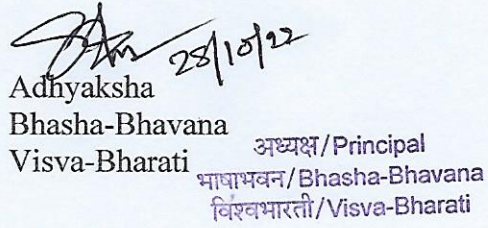 28/10/22
Adhyaksha
Bhasha-Bhavana
Visva-Bharati
अध्यक्ष/Principal
भाषाभवन/Bhasha-Bhavana
विश्वभारती/Visva-Bharati